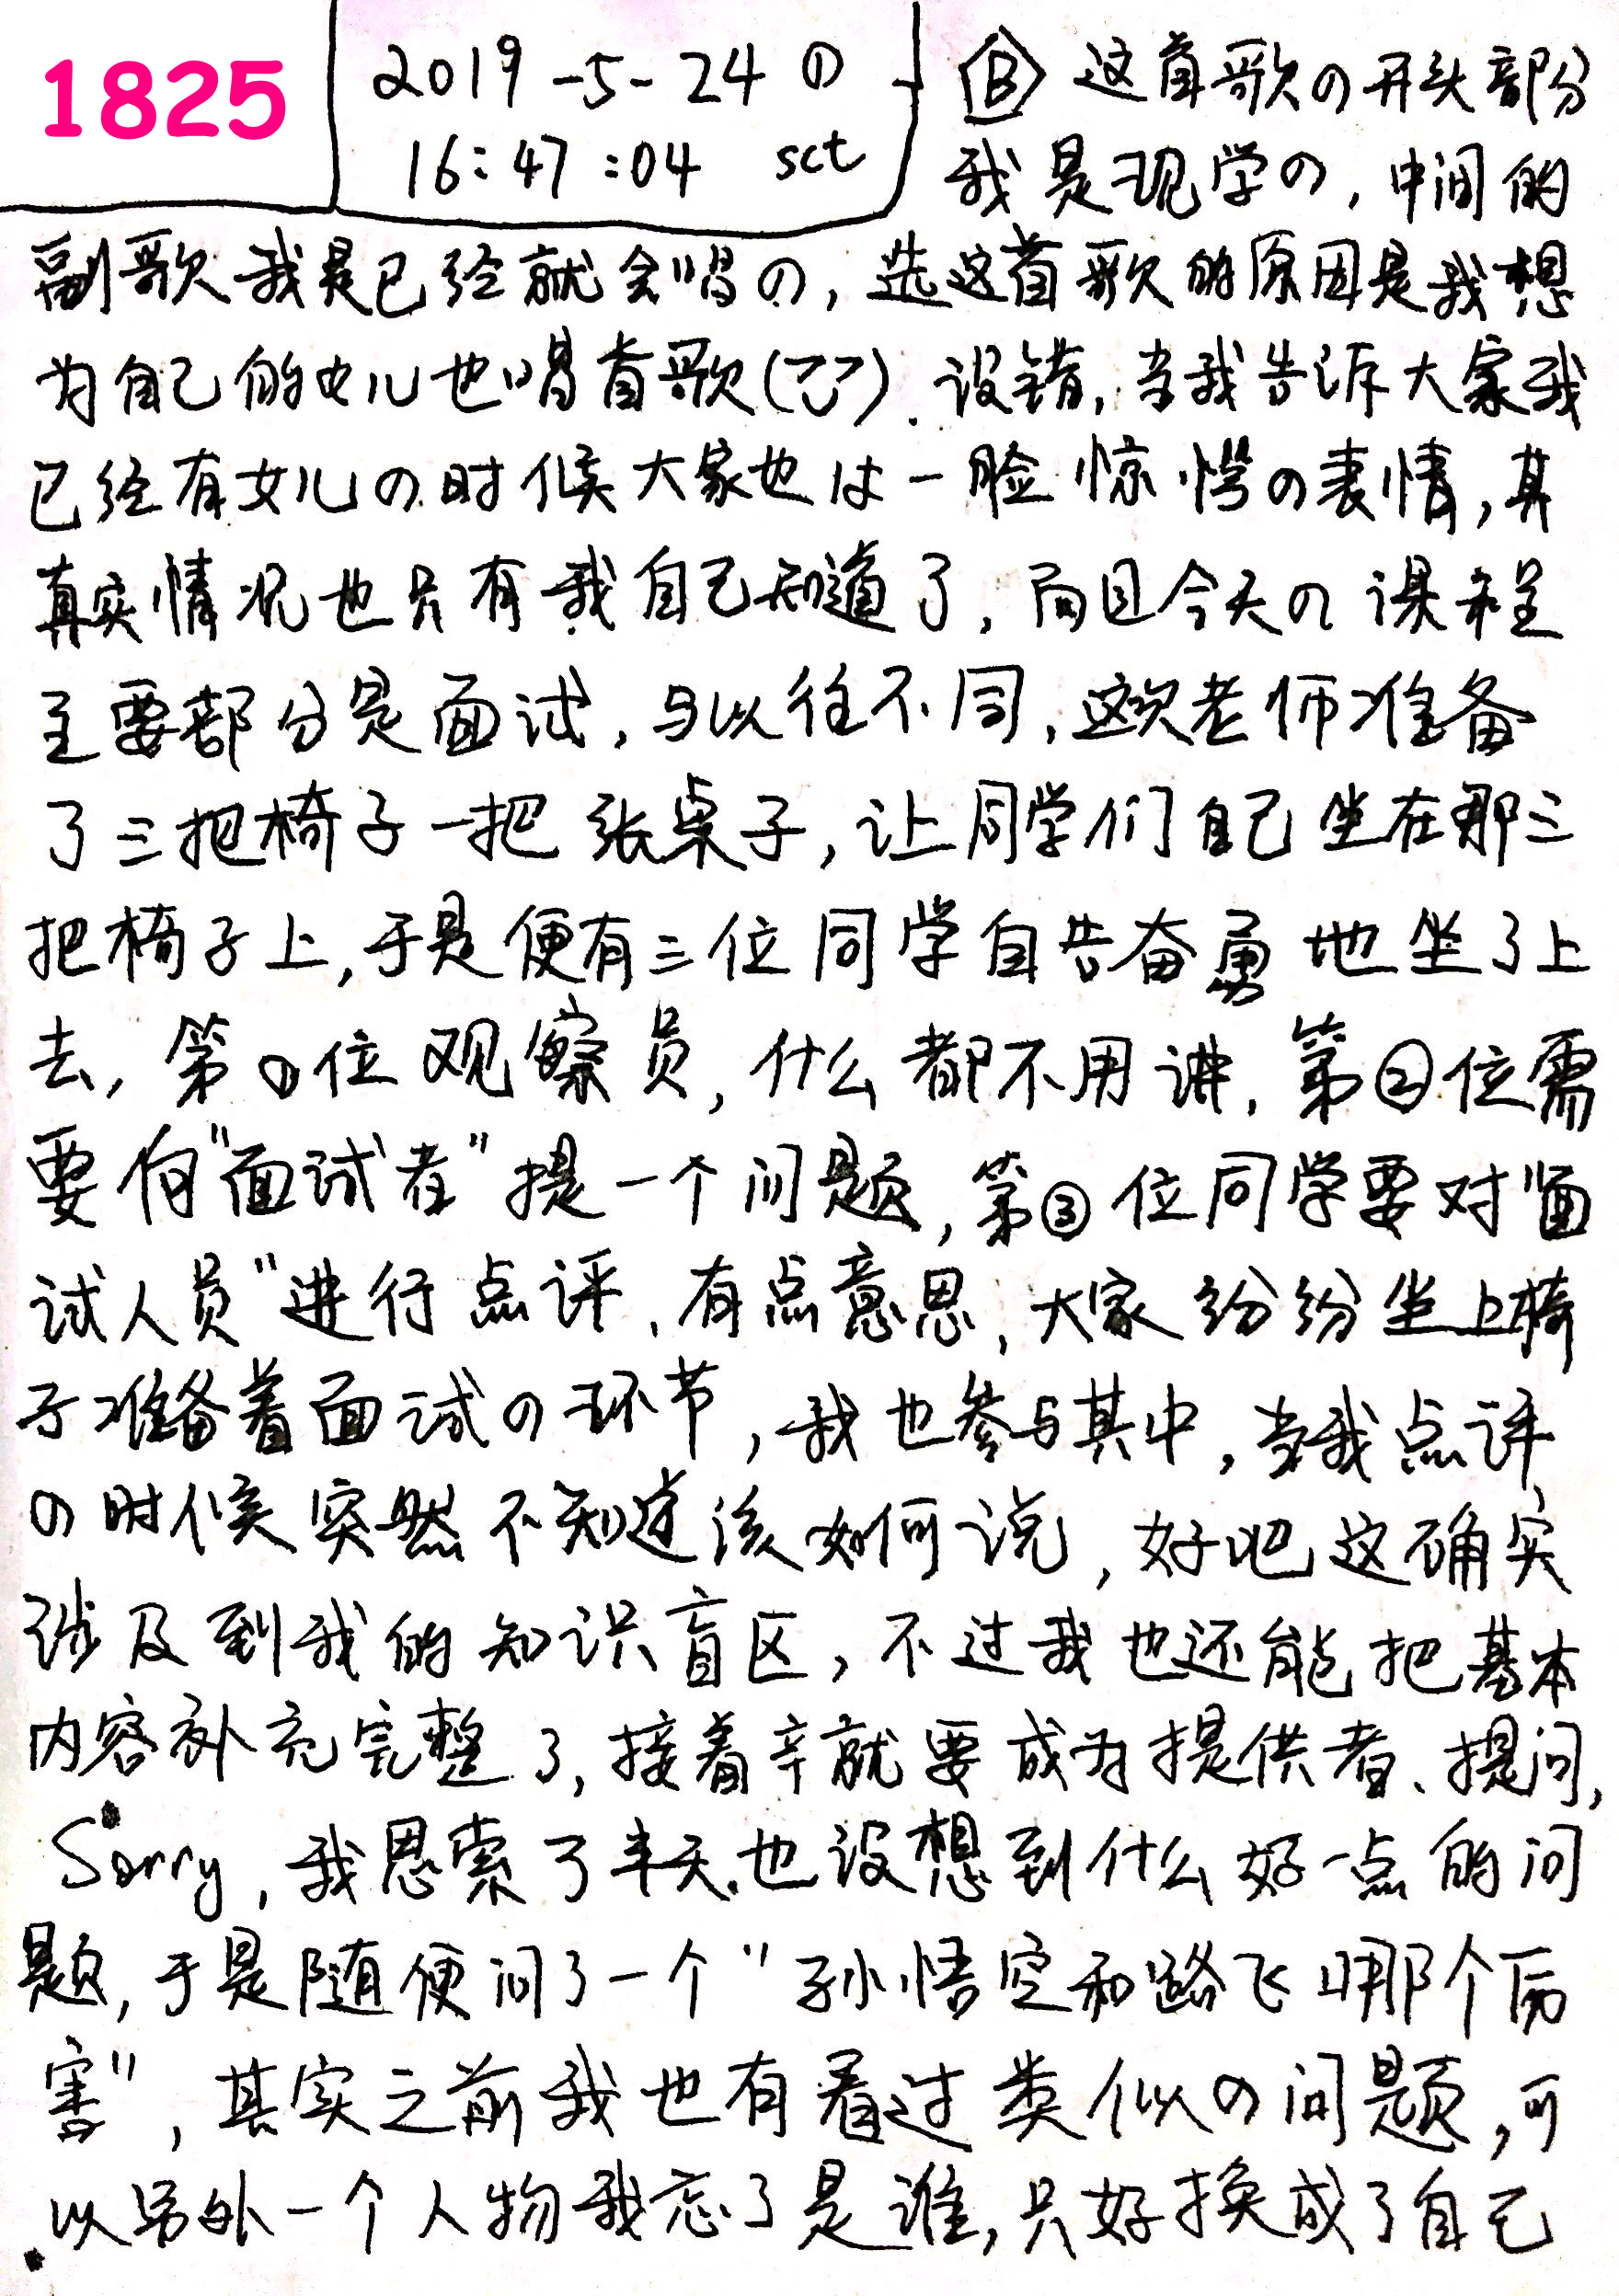 1825
2019-5-24 ①
16:47:04 sct
B 这首歌の开头部分
我是现学の,中间的
副歌我是已经就会唱の,选这首歌的原因是我想
为自己的女儿也唱首歌(了).没错,当我告诉大家我
已经有女儿の时候大家也是一脸惊愕の表情,其
真实情况也只有我自己知道了,而且今天の课程
主要部分是面试,与以往不同,这次老师准备
了三把椅子一把张桌子,让同学们自己坐在那三
把椅子上,于是便有三位同学自告奋勇地坐了上
去,第①位观察员,什么都不用讲,第②位需
要向"面试者"提一个问题,第③位同学要对"面
试人员"进行点评、有点意思,大家纷纷坐上椅
子准备着面试の环节,我也参与其中,当我点评
の时候突然不知道该如何说,好吧这确实
涉及到我的知识盲区,不过我也还能把基本
内容补充完整了,接着就要成为提供者、提问,
Sorry,我思索了半天也没想到什么好一点的问
题,于是随便问了一个"孙悟空和路飞哪个厉
害",其实之前我也有看过类似の问题,可
以另外一个人物我忘了是谁,只好换成了自己